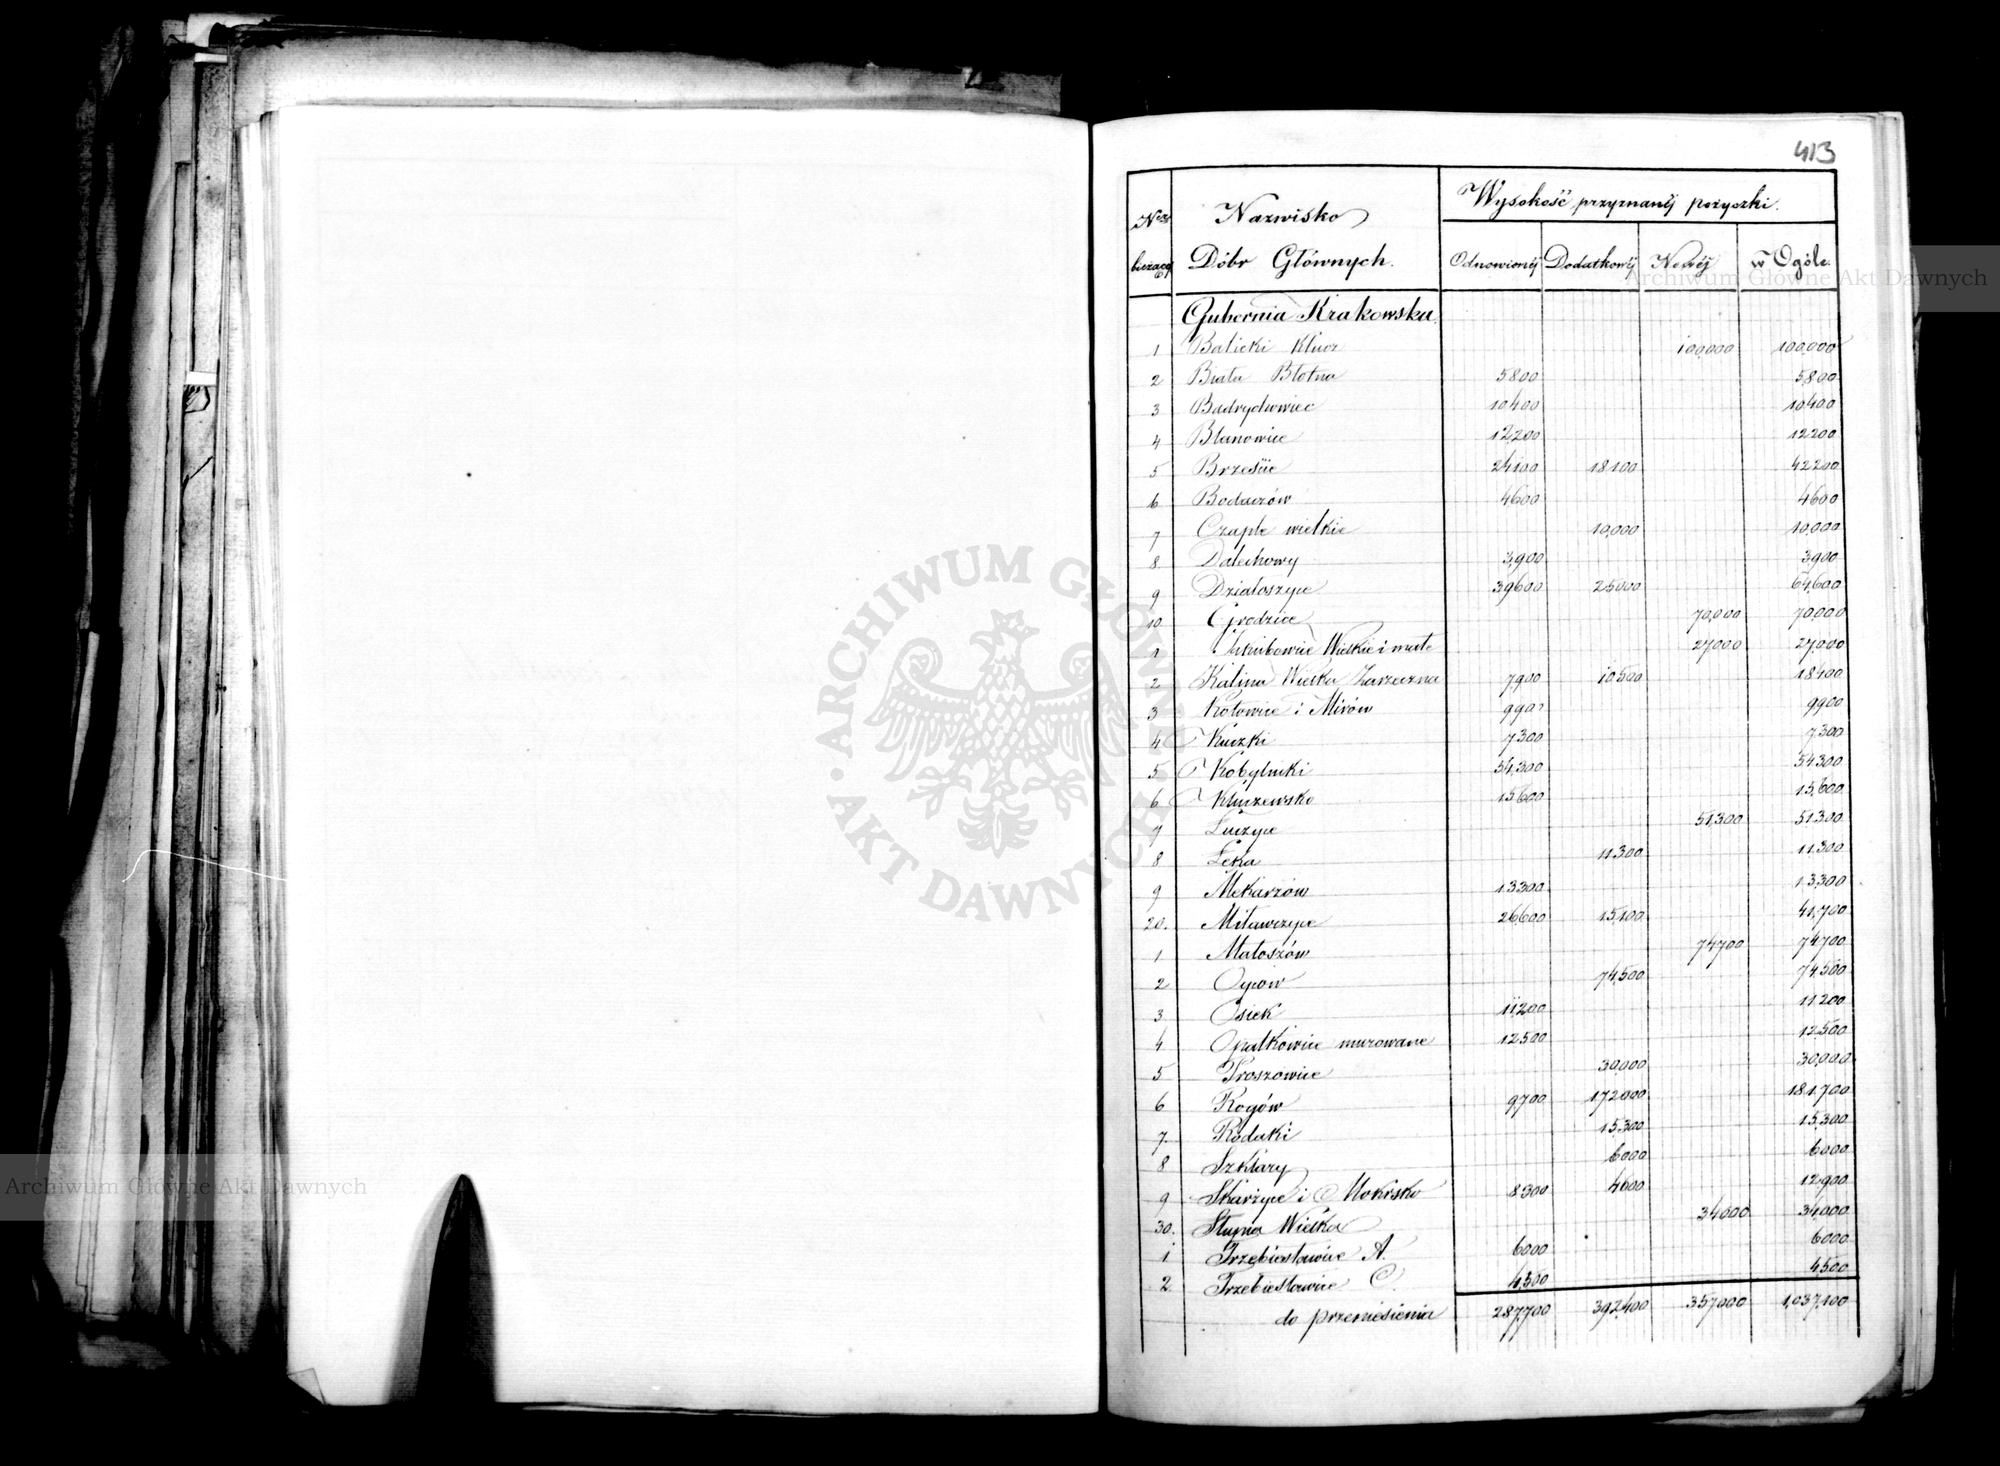 413
Nrs bieżący
Nazwisko
Dóbr Głównych.
Wysokość przyznanéj pożyczki.
Odnowionéj Dodatkowéj Nowéj w Ogóle.
Gubernia Krakowska.
1 Balicki Klucz 100,000 100,000
2 Biała Błotna 5800 5,800
3 Badrychowiec 10400 10,400
4 Blanowice 12,200 12200
5 Brzeście 24100 18100 42200
6 Bodaczów 4600 4600
7 Czaple wielkie 10,000 10,000
8 Dalechowy 3,900 3,900
9 Działoszyce 39600 25000 64,600
10 Grodzice 70,000 70,000
1 Jakubowice Wielkie i małe 27000 27,000
2 Kalina Wielka Zarzeczna 7900 10500 18400
3 Kotowice i Mirów 990 9900
4 Kuczki 7300 7300
5 Kobylniki 54,300 54300
6 Kluszewsko 15600 15,600
7 Łuczyce 51,300 51300
8 Łęka 11300 11300
9 Mękarzów 13300 13,300
20. Miławczyce 26,600 15,100 41,700
1 Małoszów 74700 74700
2 74,500 74,500
3 Osiek 11,200 11,200
4 Opatkowice murowane 12500 12,500
5 Proszowice 30,000 30,000
6 Rogów 9700 172000 181,700
7. Rodaki 15,300 15,300
8 Szklary 6000 6000
9 Skarżyce i Mokrsko 8300 4600 12,900
30. Słupia Wielka 34000 34,000
1 Trzebiesławice A. 6000 6000
2 Trzebiesławice C. 4,500 4,500
do przeniesienia 287,700 392,400 357,000 1,037,100
Archiwum Główne Akt Dawnych
ARCHIWUM GŁÓWNE AKT DAWNYCH
Archiwum Główne Akt Dawnych